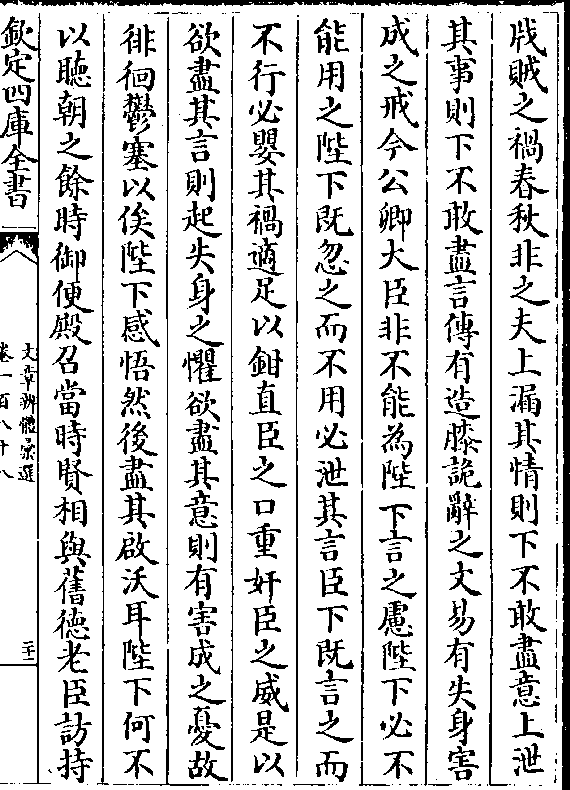 戕賊之禍春秋非之夫上漏其情則下不敢盡意上泄
其事則下不敢盡言傳有造膝詭辭之文易有失身害
成之戒今公卿大臣非不能為陛下言之慮陛下必不
能用之陛下既忽之而不用必泄其言臣下既言之而
不行必嬰其禍適足以鉗直臣之口重奸臣之威是以
欲盡其言則起失身之懼欲盡其意則有害成之憂故
徘徊鬱塞以俟陛下感悟然後盡其啟沃耳陛下何不
以聽朝之餘時御便殿召當時賢相與舊德老臣訪持
欽定四庫全書
文章辨體彙選
卷一百八十八
二十二